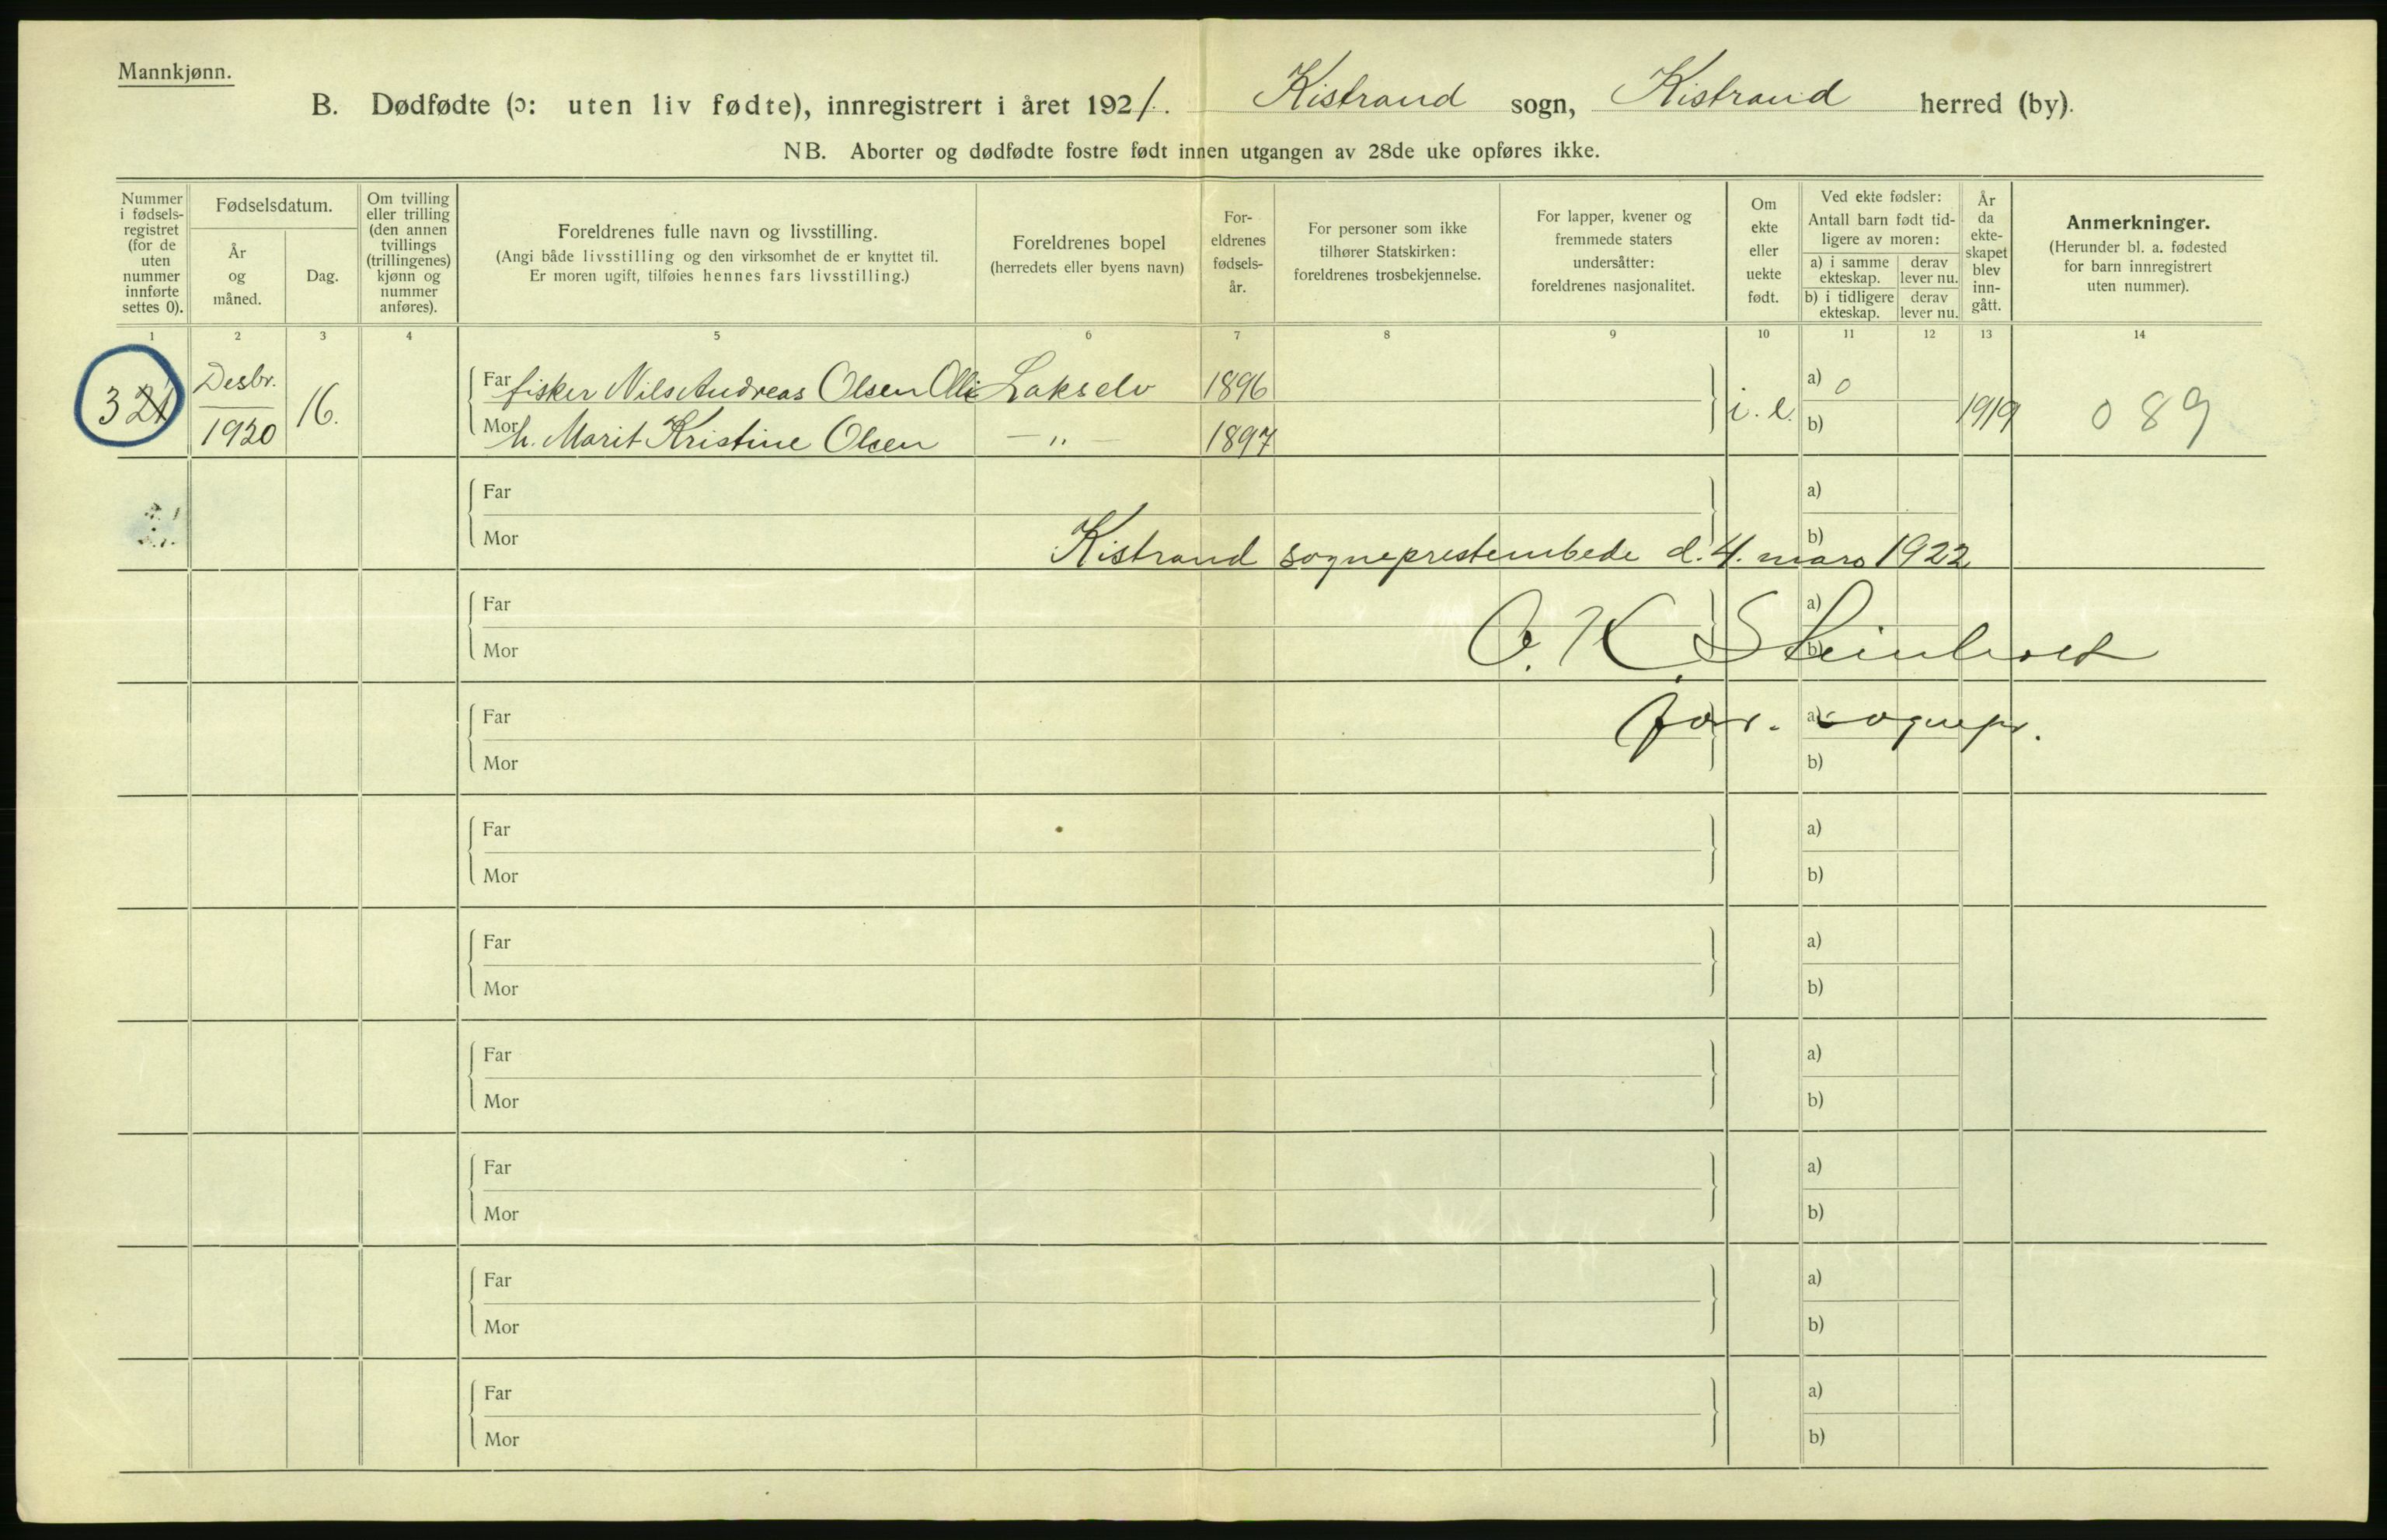 Mannkjønn.
B. Dødfødte (ɔ: uten liv fødte), innregistrert i året 1921. Kistrand sogn, Kistrand herred (by).
NB. Aborter og dødfødte fostre født innen utgangen av 28de uke opføres ikke.
Nummer i fødsels-registret (for de uten nummer innførte settes 0).
Fødselsdatum.
År og måned.
Dag.
Om tvilling eller trilling (den annen tvillings (trillingenes) kjønn og nummer anføres).
Foreldrenes fulle navn og livsstilling.
(Angi både livsstilling og den virksomhet de er knyttet til.
Er moren ugift, tilføies hennes fars livsstilling.)
Foreldrenes bopel
(herredets eller byens navn)
For-eldrenes fødsels-år.
For personer som ikke tilhører Statskirken: foreldrenes trosbekjennelse.
For lapper, kvener og fremmede staters undersåtter: foreldrenes nasjonalitet.
Om ekte eller uekte født.
Ved ekte fødsler:
Antall barn født tid-ligere av moren:
a) i samme ekteskap.
derav lever nu.
b) i tidligere ekteskap.
derav lever nu.
År da ekte-skapet blev inn-gått.
Anmerkninger.
(Herunder bl. a. fødested for barn innregistrert uten nummer).
1 2 3 4 5 6 7 8 9 10 11 12 13 14
Desbr. 1920 16.
Far fisker Nils Andreas Olsen Olli Lakselv 1896 i. e. a) 0 1919 089
Mor h. Marit Kristine Olsen — " — 1897 b)
Far a)
Mor b)
Kistrand sogneprestembede d. 4. mars 1922
Far a)
Mor b)
O. K. Steinholt
Far a)
for. sognepr.
Mor b)
Far a)
Mor b)
Far a)
Mor b)
Far a)
Mor b)
Far a)
Mor b)
Far a)
Mor b)
Far a)
Mor b)